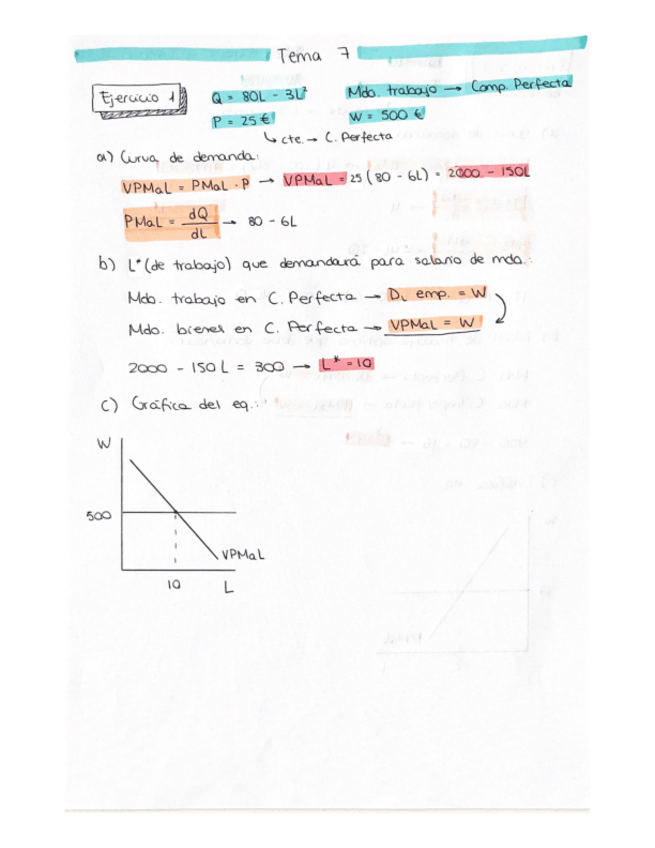 Tema 7
Ejercicio 1 Q = 80L - 3L² Mdo. trabajo → Comp. Perfecta
P = 25 € W = 500 €
↳ cte. → C. Perfecta
a) Curva de demanda:
VPMaL = PMaL · P → VPMaL = 25 (80 - 6L) = 2000 - 150L
PMaL = dQ/dL → 80 - 6L
b) L* (de trabajo) que demandará para salario de mdo.:
Mdo. trabajo en C. Perfecta → DL emp. = W
Mdo. bienes en C. Perfecta → VPMaL = W
2000 - 150 L = 300 → L* = 10
c) Gráfica del eq.:
W
500
VPMaL
10 L